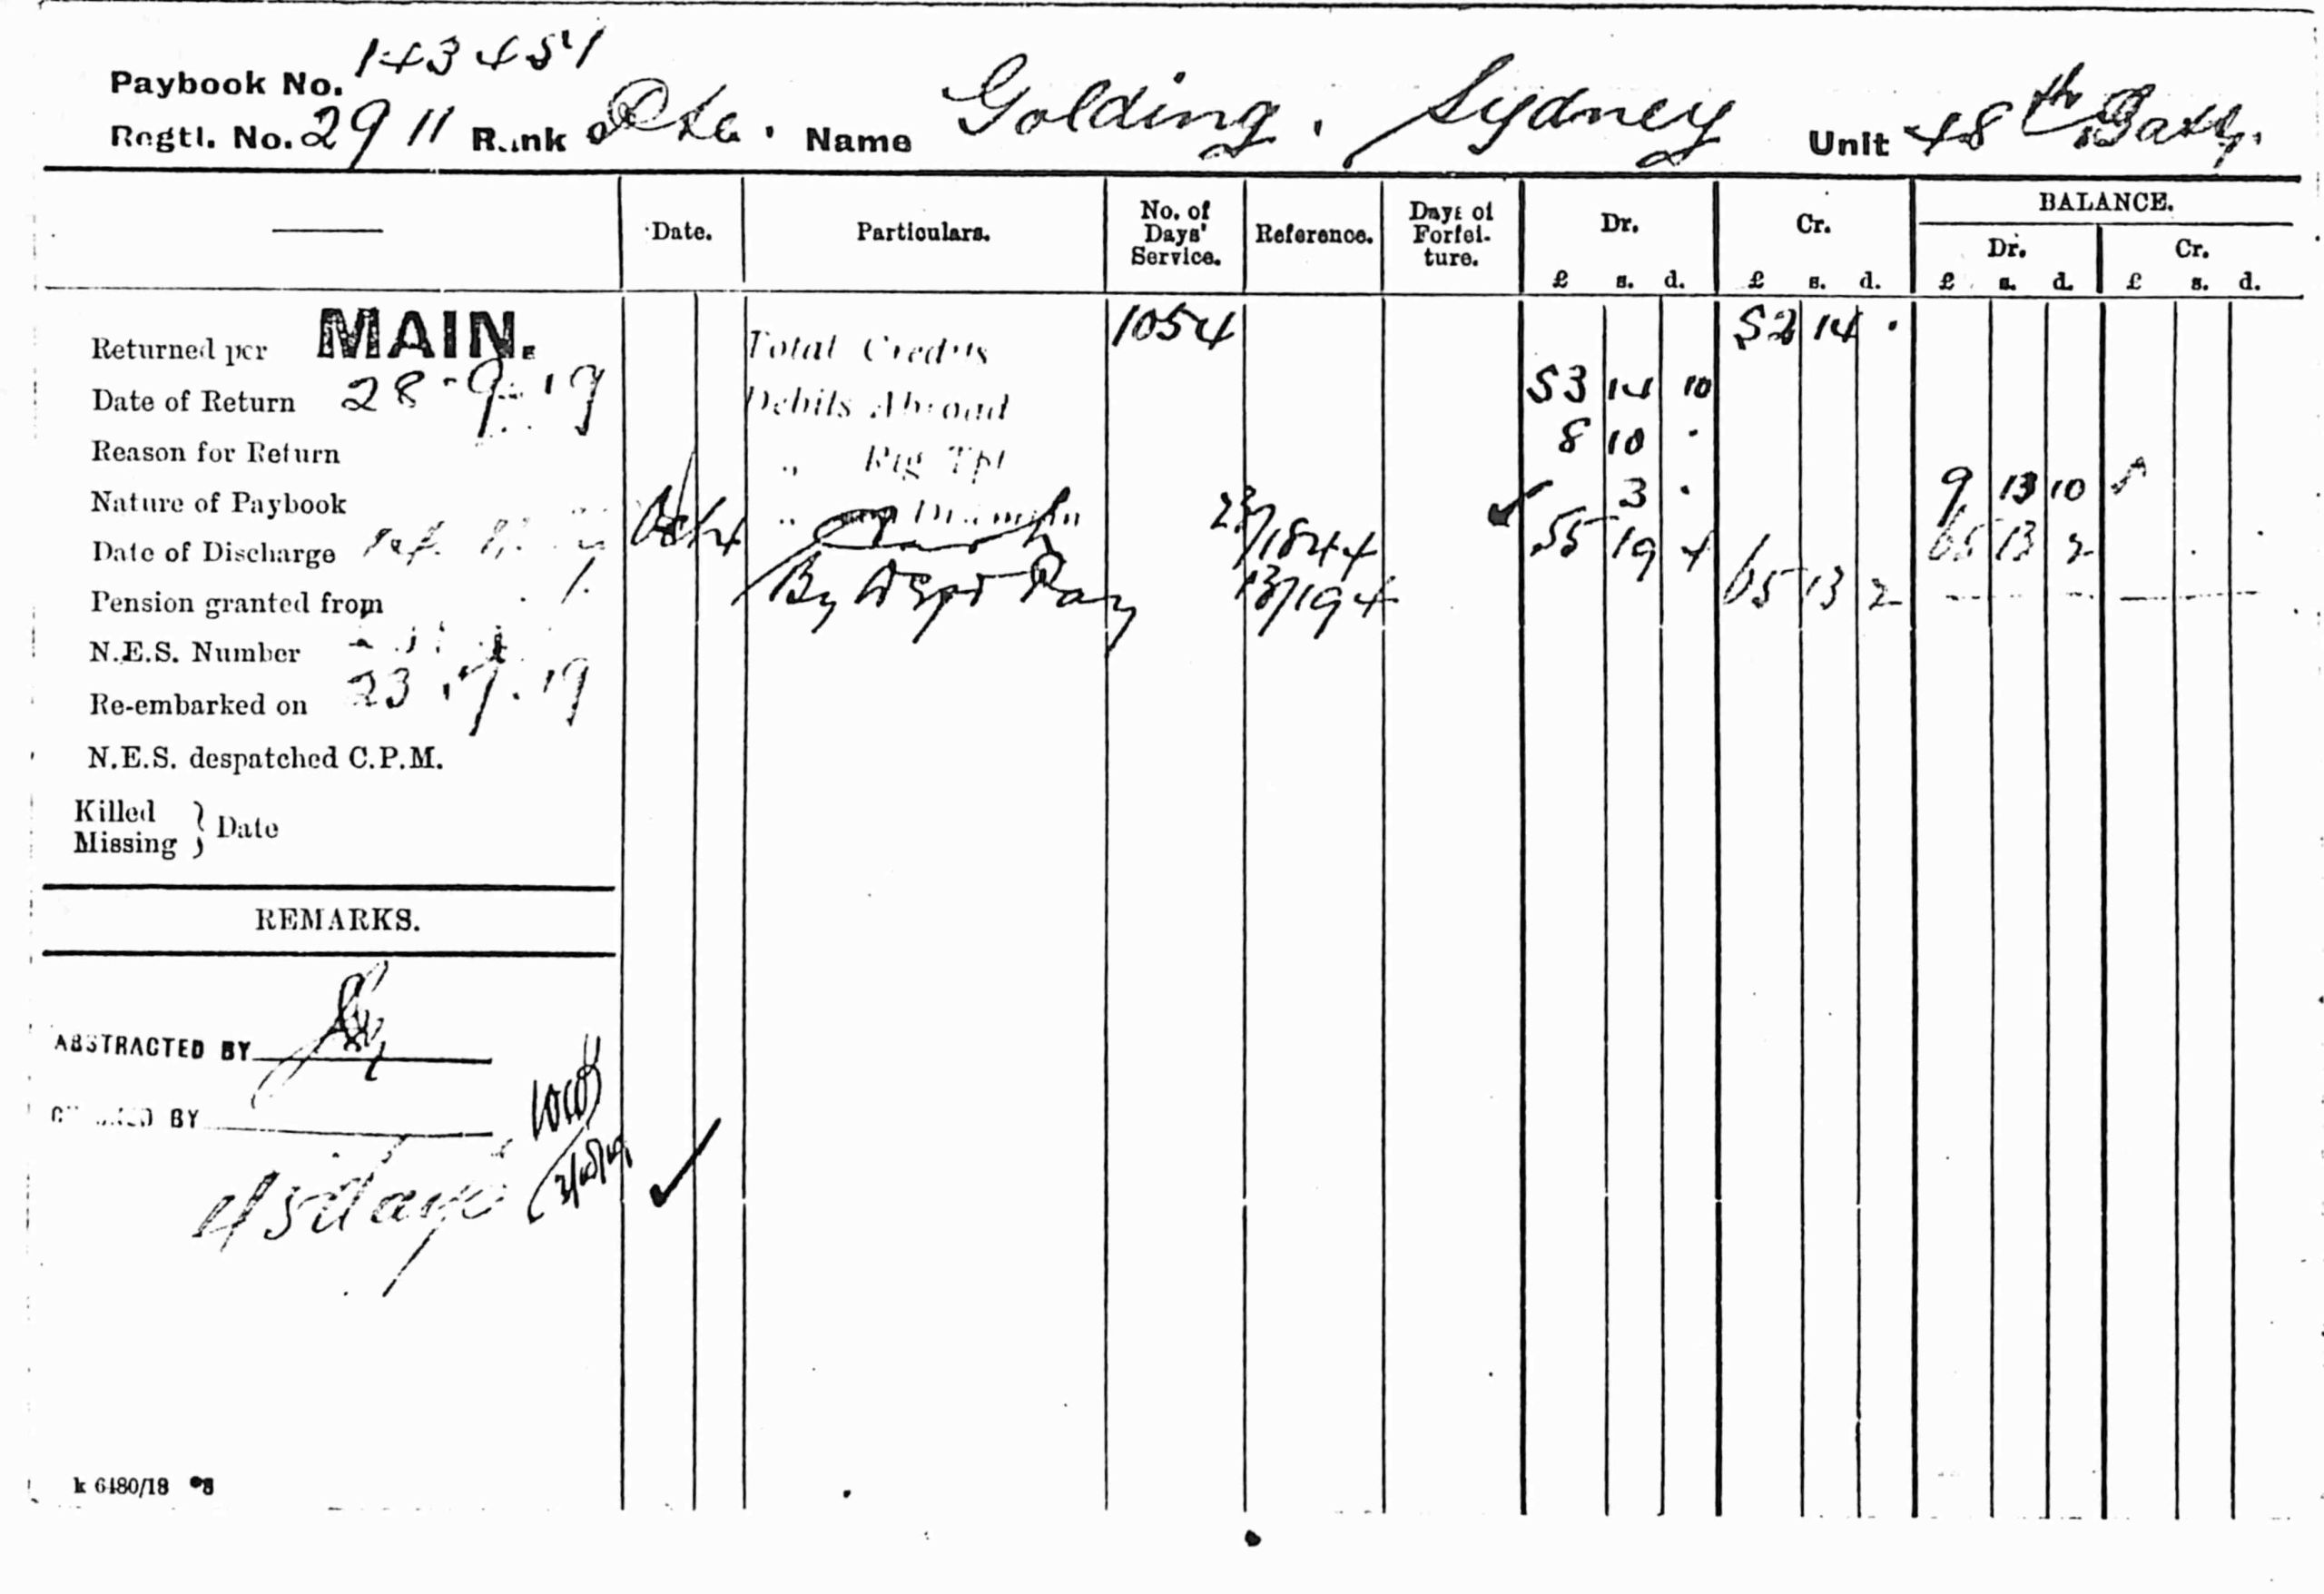 Paybook No. 143451
Regtl. No. 2911 Rank Pte. Name Golding, Sydney Unit 48th Batty.
Date. Particulars. No. of Days' Service. Reference. Days of Forfeiture. Dr. Cr. BALANCE.
Dr. Cr.
£ s. d. £ s. d. £ s. d. £ s. d.
Returned per MAIN. Total Credits 1054 52 14 .
Date of Return 28-9-19 Debits Abroad 53 14 10
Reason for Return " Rtg Tpt 8 10 .
Nature of Paybook " 3 . 9 13 10
Date of Discharge Oct 4 Cash 23/1844 55 19 4 65 13 2
Pension granted from By Dept Pay 13/194 65 13 2
N.E.S. Number
Re-embarked on 23.7.19
N.E.S. despatched C.P.M.
Killed
Missing } Date
REMARKS.
ABSTRACTED BY
BY
k 6480/18